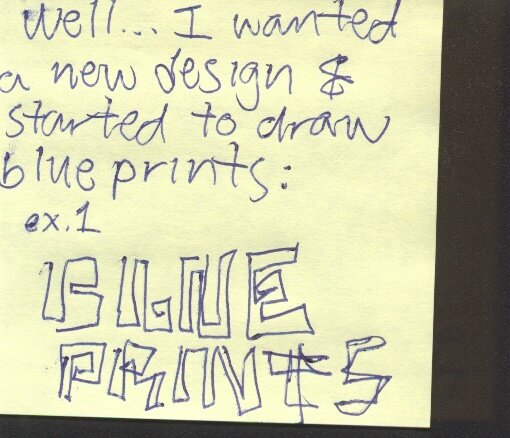 well... I wanted
a new design &
started to draw
blue prints:
ex.1
BLUE
PRINTS